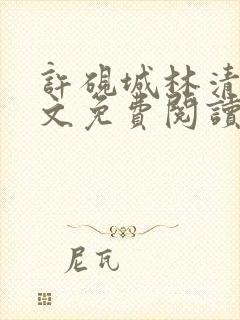 許硯城林清
文免費閱讀
尼瓦